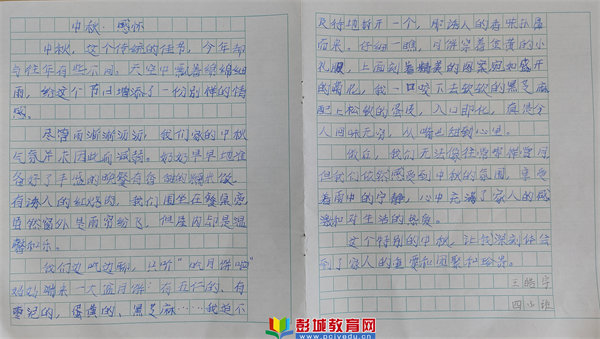 中秋·感怀
中秋,这个传统的佳节,今年却
与往年有些不同。天空中飘着绵绵细
雨,给这个节日增添了一份别样的情
感。
尽管雨淅淅沥沥,我们家的中秋
气氛并未因此而减弱。妈妈早早地准
备好了丰盛的晚餐有
有诱人的红烧肉。我们围坐在餐桌旁
虽然窗外是雨雾纷飞,但屋内却是温
馨和乐。
我们边吃边聊,只听“吃月饼啦”
妈妈端来一大盘月饼:有五仁的、有
枣泥的,蛋黄的、黑芝麻……我迫不
及待地拆开一个,那诱人的香味扑鼻
而来,仔细一瞧,月饼穿着金黄的小
礼服,上面刻着精美的图案宛如盛开
的菊花,我一口咬下去软软的黑芝麻
配上松软的蛋皮,入口即化,真是令
人回味无穷,从嘴巴甜到心里。
现在,我们无法像往常那样赏月
但我们依然感受到中秋的氛围,享受
着雨中的宁静,心中充满了家人的感
激和对生活的热爱。
这个特别的中秋,让我深刻体会
到了家人的重要和团聚和珍贵。
王皓宇
四(1)班
彭城教育网
www.pcjyedu.cn